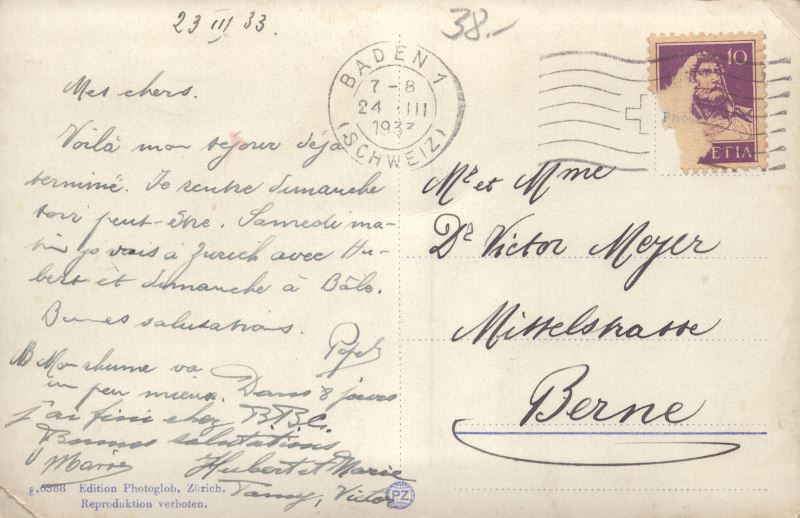 23 III 33.
38.-
BADEN 1
7-8
24 III
1933
(SCHWEIZ)
10
Pho
ETIA
Mes chers.
Voilà mon sejour déjà
terminé. Je rentre dimanche
soir peut-être. Samedi ma-
tin je vais à Zurich avec Hu-
bert et dimanche à Bâle.
Bonnes salutations.
NB Mon rhume va
un peu mieux. Dans 8 jours
j'ai fini chez B.B.C.
Bonnes salutations
Hubert et Marie
Victor
Mr et Mme
Dr Victor Meyer
Mittelstrasse
Berne
Edition Photoglob, Zürich.
Reproduktion verboten.
PZ